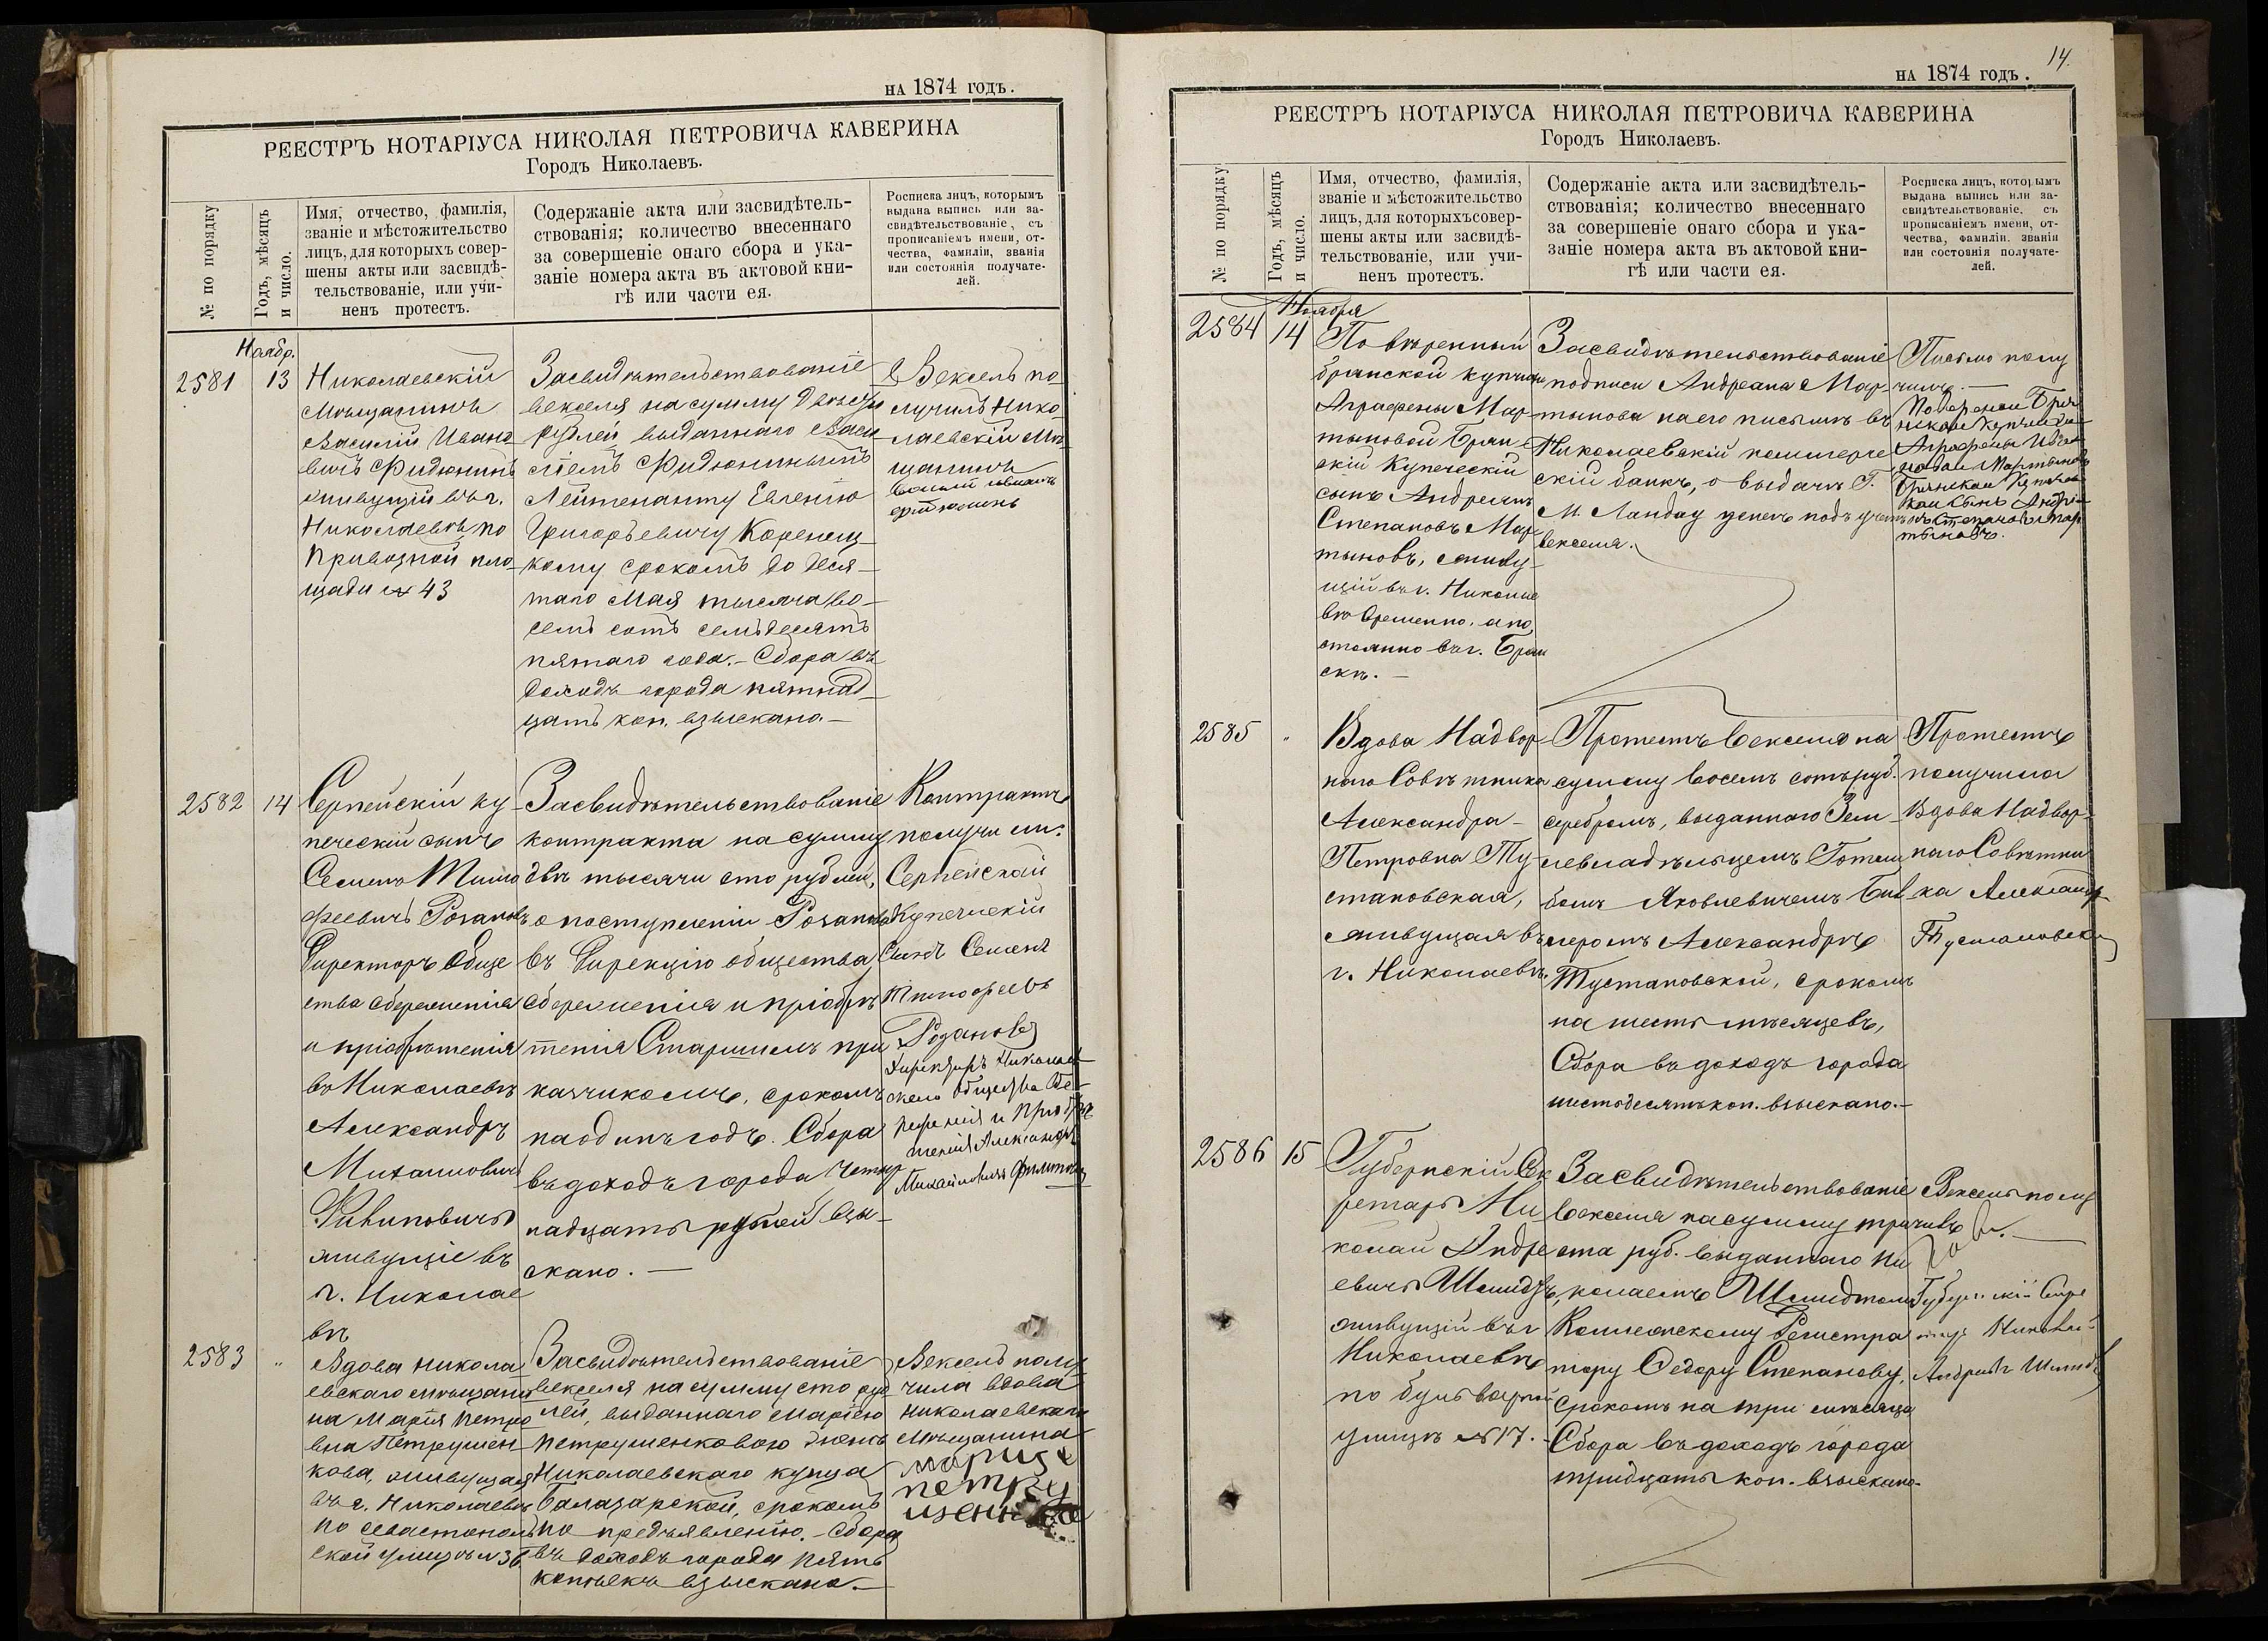 на 1874 годъ.
РЕЕСТРЪ НОТАРІУСА НИКОЛАЯ ПЕТРОВИЧА КАВЕРИНА
Городъ Николаевъ.
№ по порядку
Годъ, мѣсяцъ
и число.
Имя, отчество, фамилія,
званіе и мѣстожительство
лицъ, для которыхъ совер-
шены акты или засвидѣ-
тельствованіе, или учи-
ненъ протестъ.
Содержаніе акта или засвидѣтель-
ствованія; количество внесеннаго
за совершеніе онаго сбора и ука-
заніе номера акта въ актовой кни-
гѣ или части ея.
Росписка лицъ, которымъ
выдана выпись или за-
свидѣтельствованіе, съ
прописаніемъ имени, от-
чества, фамиліи, званія
или состоянія получате-
лей.
Ноябр.
2581
13
Николаевскій
Мѣщанинъ
Василій Ивано
вичъ Фидюнинъ
живущій въ г.
Николаевѣ по
Привозной пло-
щади № 43
Засвидѣтельствованіе
векселя на сумму двѣсти
рублей выданнаго Васи
ліемъ Фидюнинымъ
Лейтенанту Евгенію
Григорьевичу Коренец-
кому срокомъ до деся-
таго Мая тысяча во-
семь сотъ семьдесятъ
пятаго года. - Сбора въ
доходъ города пятнад-
цать коп. взыскано. -
Вексель по-
лучилъ Нико
лаевскій Мѣ-
щанинъ
2582
14
Серпейскій ку-
печескій сынъ
Семенъ Тимо
феевичъ Розановъ
Директоръ Обще
ства сбереженія
и пріобрѣтенія
въ Николаевѣ
Александръ
Михаиловичъ
живущіе въ
г. Николае
вѣ
Засвидѣтельствованіе
контракта на сумму
двѣ тысячи сто рублей,
о поступленіи Розанова
въ Дирекцію общества
сбереженія и пріобрѣ
тенія Старшимъ при
казчикомъ, срокомъ
на одинъ годъ. Сбора
въ доходъ города четыр
надцать рублей взы-
скано. -
Контрактъ
получили:
Серпейскай
Купеческій
Сынъ Семенъ
Тимофеевъ
Розановъ
Директоръ Николаев
скаго Общества Сбе-
реженія и Пріобрѣ
тенія Александръ
Михайловичъ
2583
"
Вдова Никола
евскаго мѣщани
на Марія Петро
вна Петрушен-
кова, живущая
въ г. Николаевѣ
по Севастополь
ской улицѣ № 36
Засвидѣтельствованіе
векселя на сумму сто руб
лей, выданнаго Маріею
Петрушенковою женѣ
Николаевскаго купца
срокомъ
по предъявленію. - Сбора
въ доходъ города пять
копѣекъ взыскано. -
Вексель полу
чила вдова
Николаевскаго
Мѣщанина
мария
петру
на 1874 годъ.
14.
РЕЕСТРЪ НОТАРІУСА НИКОЛАЯ ПЕТРОВИЧА КАВЕРИНА
Городъ Николаевъ.
№ по порядку
Годъ, мѣсяцъ
и число.
Имя, отчество, фамилія,
званіе и мѣстожительство
лицъ, для которыхъ совер-
шены акты или засвидѣ-
тельствованіе, или учи-
ненъ протестъ.
Содержаніе акта или засвидѣтель-
ствованія; количество внесеннаго
за совершеніе онаго сбора и ука-
заніе номера акта въ актовой кни-
гѣ или части ея.
Росписка лицъ, которымъ
выдана выпись или за-
свидѣтельствованіе, съ
прописаніемъ имени, от-
чества, фамиліи, званія
или состоянія получате-
лей.
Ноября
2584
14
Повѣренный
брянской купчихи
Аграфены Мар-
тыновой Брян-
скій Купеческій
сынъ Андреянъ
Степановъ Мар-
тыновъ, живу-
щій въ г. Николае
вѣ временно, а по
стоянно въ г. Брян
скѣ. -
Засвидѣтельствованіе
подписи Андреана Мар-
тынова на его письмѣ въ
Николаевскій коммерче
скій банкъ, о выдачѣ Г.
М. Ландау денегъ подъ учетъ
векселя.
Письмо полу
чилъ. -
2585
"
Вдова Надвор-
наго Совѣтника
Александра
Петровна Ту-
становская,
живущая въ
г. Николаевѣ.
Протестъ векселя на
сумму восемь сотъ руб.
серебромъ, выданнаго Зем-
левладѣльцемъ
Яковлевичемъ
Александрѣ
Тустановской, срокомъ
на шесть мѣсяцевъ,
Сбора въ доходъ города
шестьдесятъ коп. взыскано. -
Протестъ
получила
Вдова Надвор-
наго Совѣтни
ка Александр
Тустановска
2586
15
Губернскій Сек
ретарь Ни-
колай Андре
евичъ Шмидтъ,
живущій въ г
Николаевѣ
по бульварной
улицѣ № 17.
Засвидѣтельствованіе
векселя на сумму три
ста руб. выданнаго Ни
колаемъ Шмидтомъ
Коллежскому Регистра
тору Федору Степанову,
срокомъ на три мѣсяца
Сбора въ доходъ города
тридцать коп. взыскано.
Вексель полу
чилъ
Губернскій Секре
тарь Николай
Андреевъ Шмидтъ